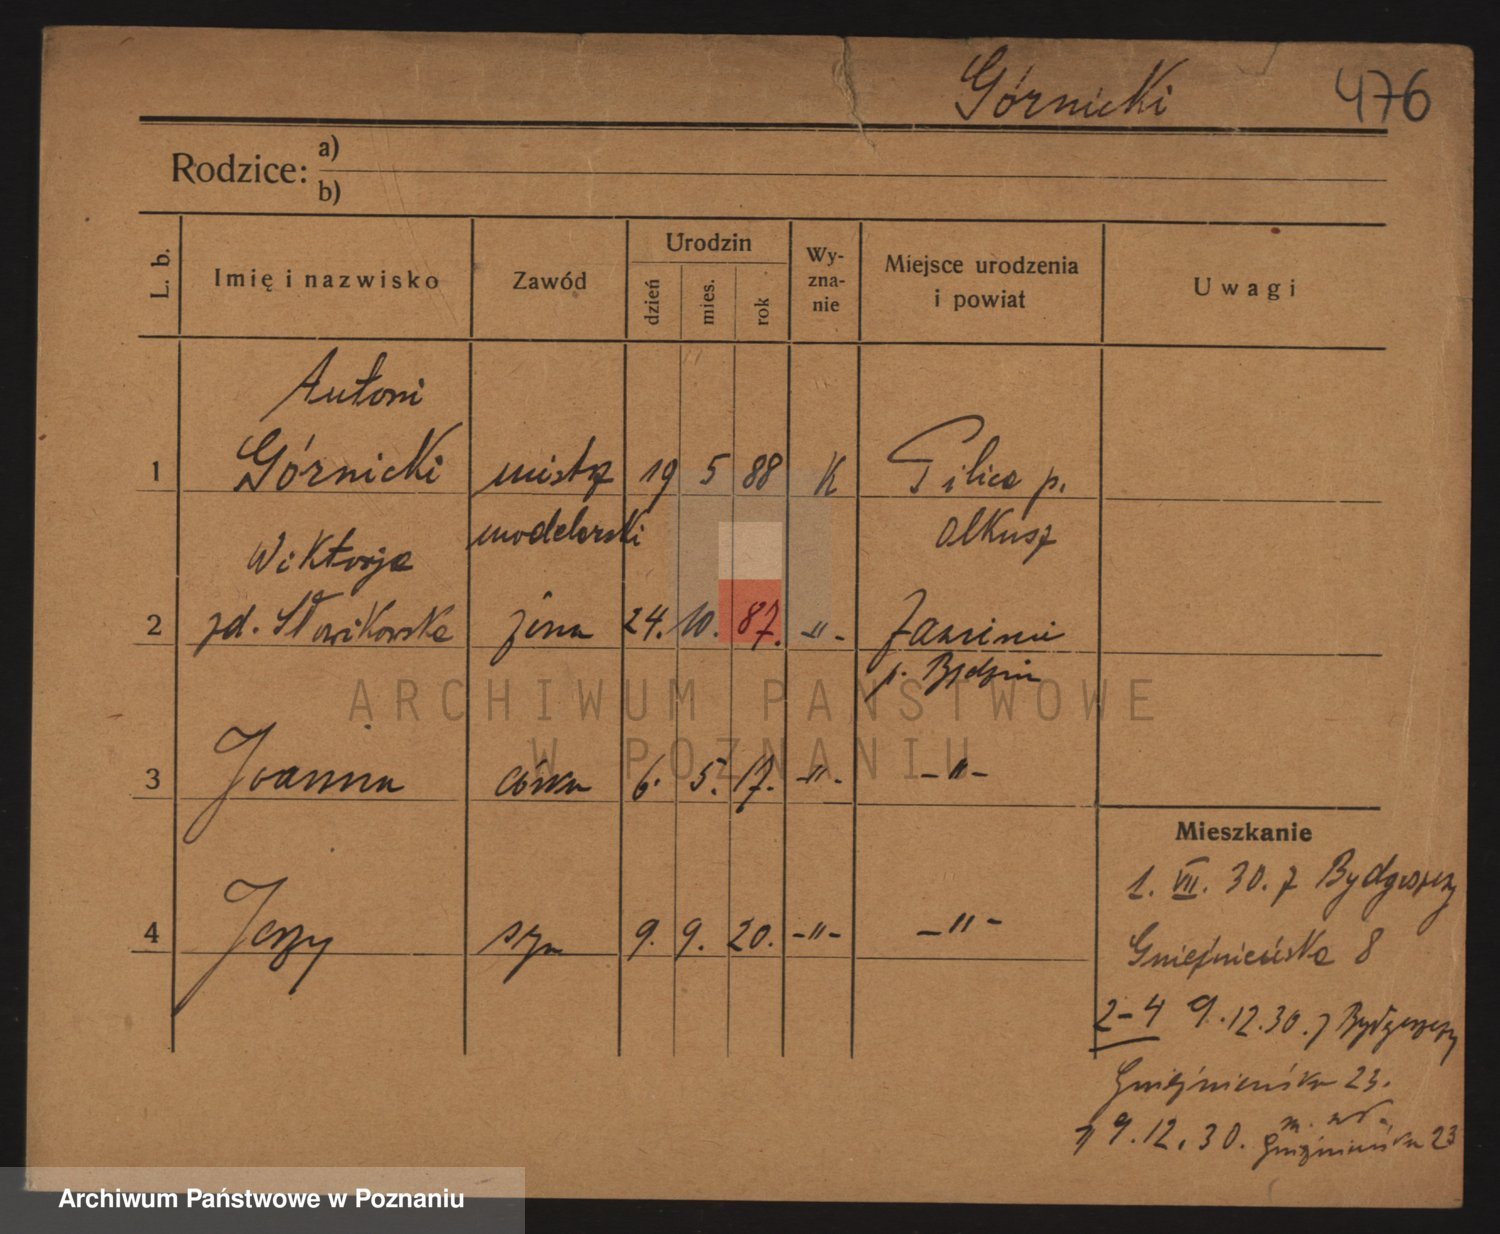 Górnicki 476
Rodzice: a)
b)
L. b. Imię i nazwisko Zawód Urodzin dzień mies. rok Wy-zna-nie Miejsce urodzenia i powiat Uwagi
Antoni
1 Górnicki mistrz 19 5 88 K Pilica p.
modelarski Olkusz
Wiktorja
2 zd. Sławikowska żona 24. 10. 87. -"-
p. Będzin
3 Joanna córka 6. 5. 17. -"- -"-
Mieszkanie
1. VII. 30. z Bydgoszczy
4 Jerzy syn 9. 9. 20. -"- -"-
Gnieźnieńska 8
2-4 9.12.30. z Bydgoszczy
Gnieźnieńska 23.
1 9.12.30. Gnieźnieńska 23
ARCHIWUM PAŃSTWOWE
W POZNANIU
Archiwum Państwowe w Poznaniu